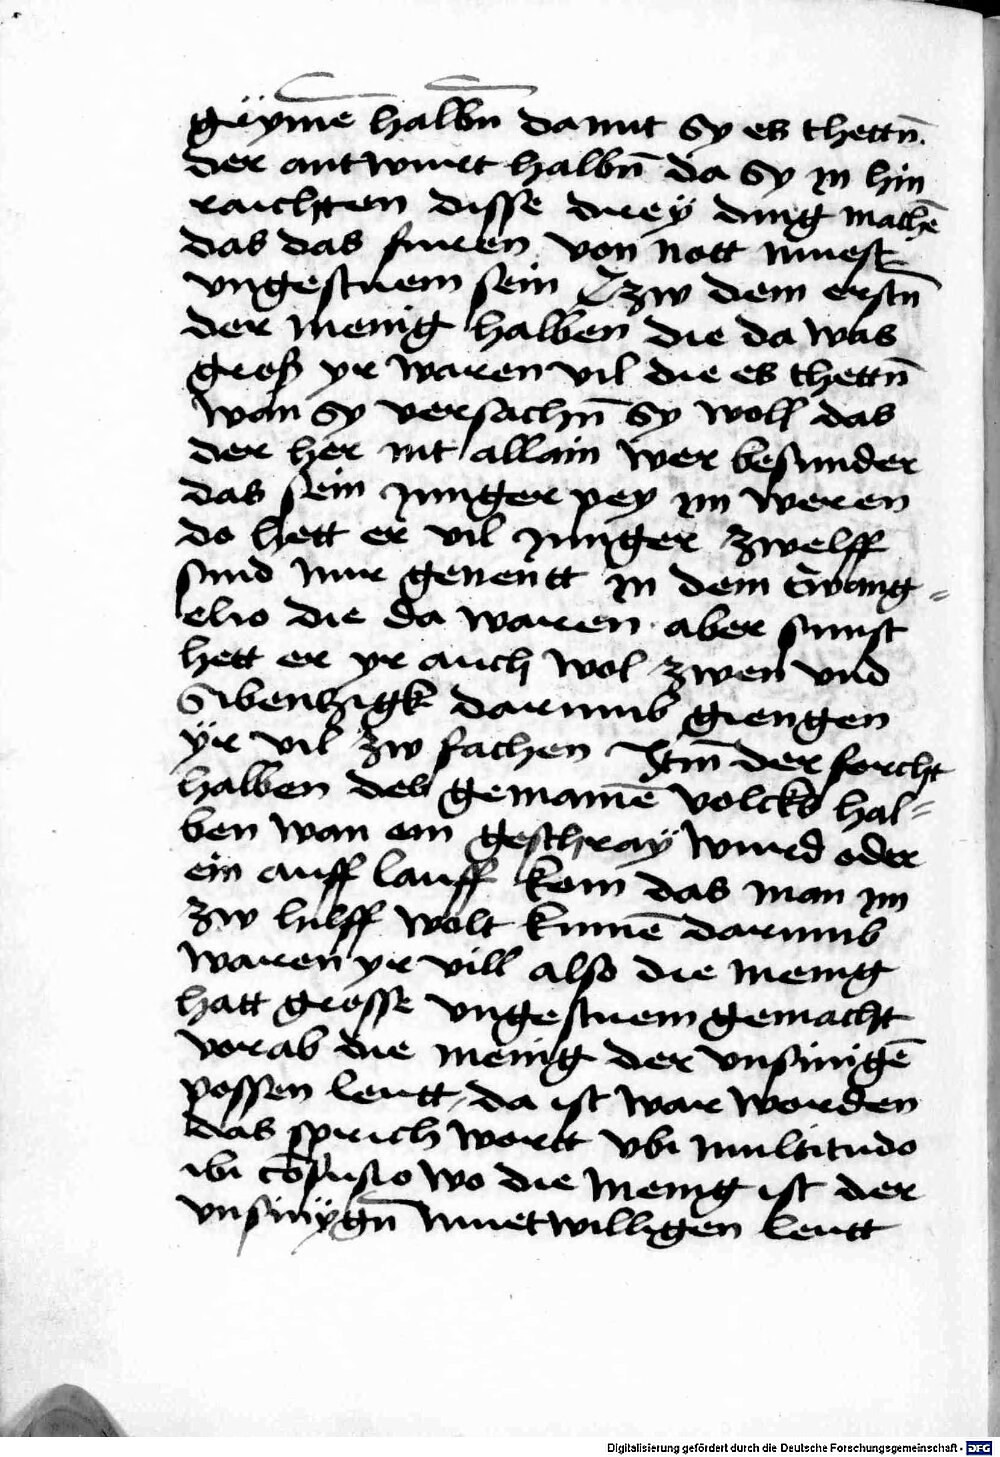 gryme̅ halbn̅ damit Sy es thettn̅.
der antwurt halbn̅ da Sy in hin
raichten disse drey ding mache̅
das das furen von nott muest
vngestuem sein zw dem erstn̅
der menig halben die da was
groß yr waren vil die es thettn̅
wan Sy versachn̅ Sy woll das
der her nit allain wer besunder
das sein junger pey im weren
do hett er vil junger zwelff
sind nur genentt in dem ewang=
elio die da waren aber sunst
hett er yr auch wol zwen vnd
Sibenzigk darumb giengen
yr vil zw fachen Ite̅m der forcht
halben des gemaine̅ volcks hal=
ben wan ein geschray wurd oder
ein auff lauff kem das man im
zw hilff wolt kume̅ darumb
waren yr vill also die menig
hatt grosse vngestuem gemacht
vorab die menig der vnsinige̅
possen leutt da ist war worden
das sprich wortt vbi multitudo
ibi co̅fusio wo die menig ist der
vnsinygn̅ muetwilligen leutt
Digitalisierung gefördert durch die Deutsche Forschungsgemeinschaft - DFG